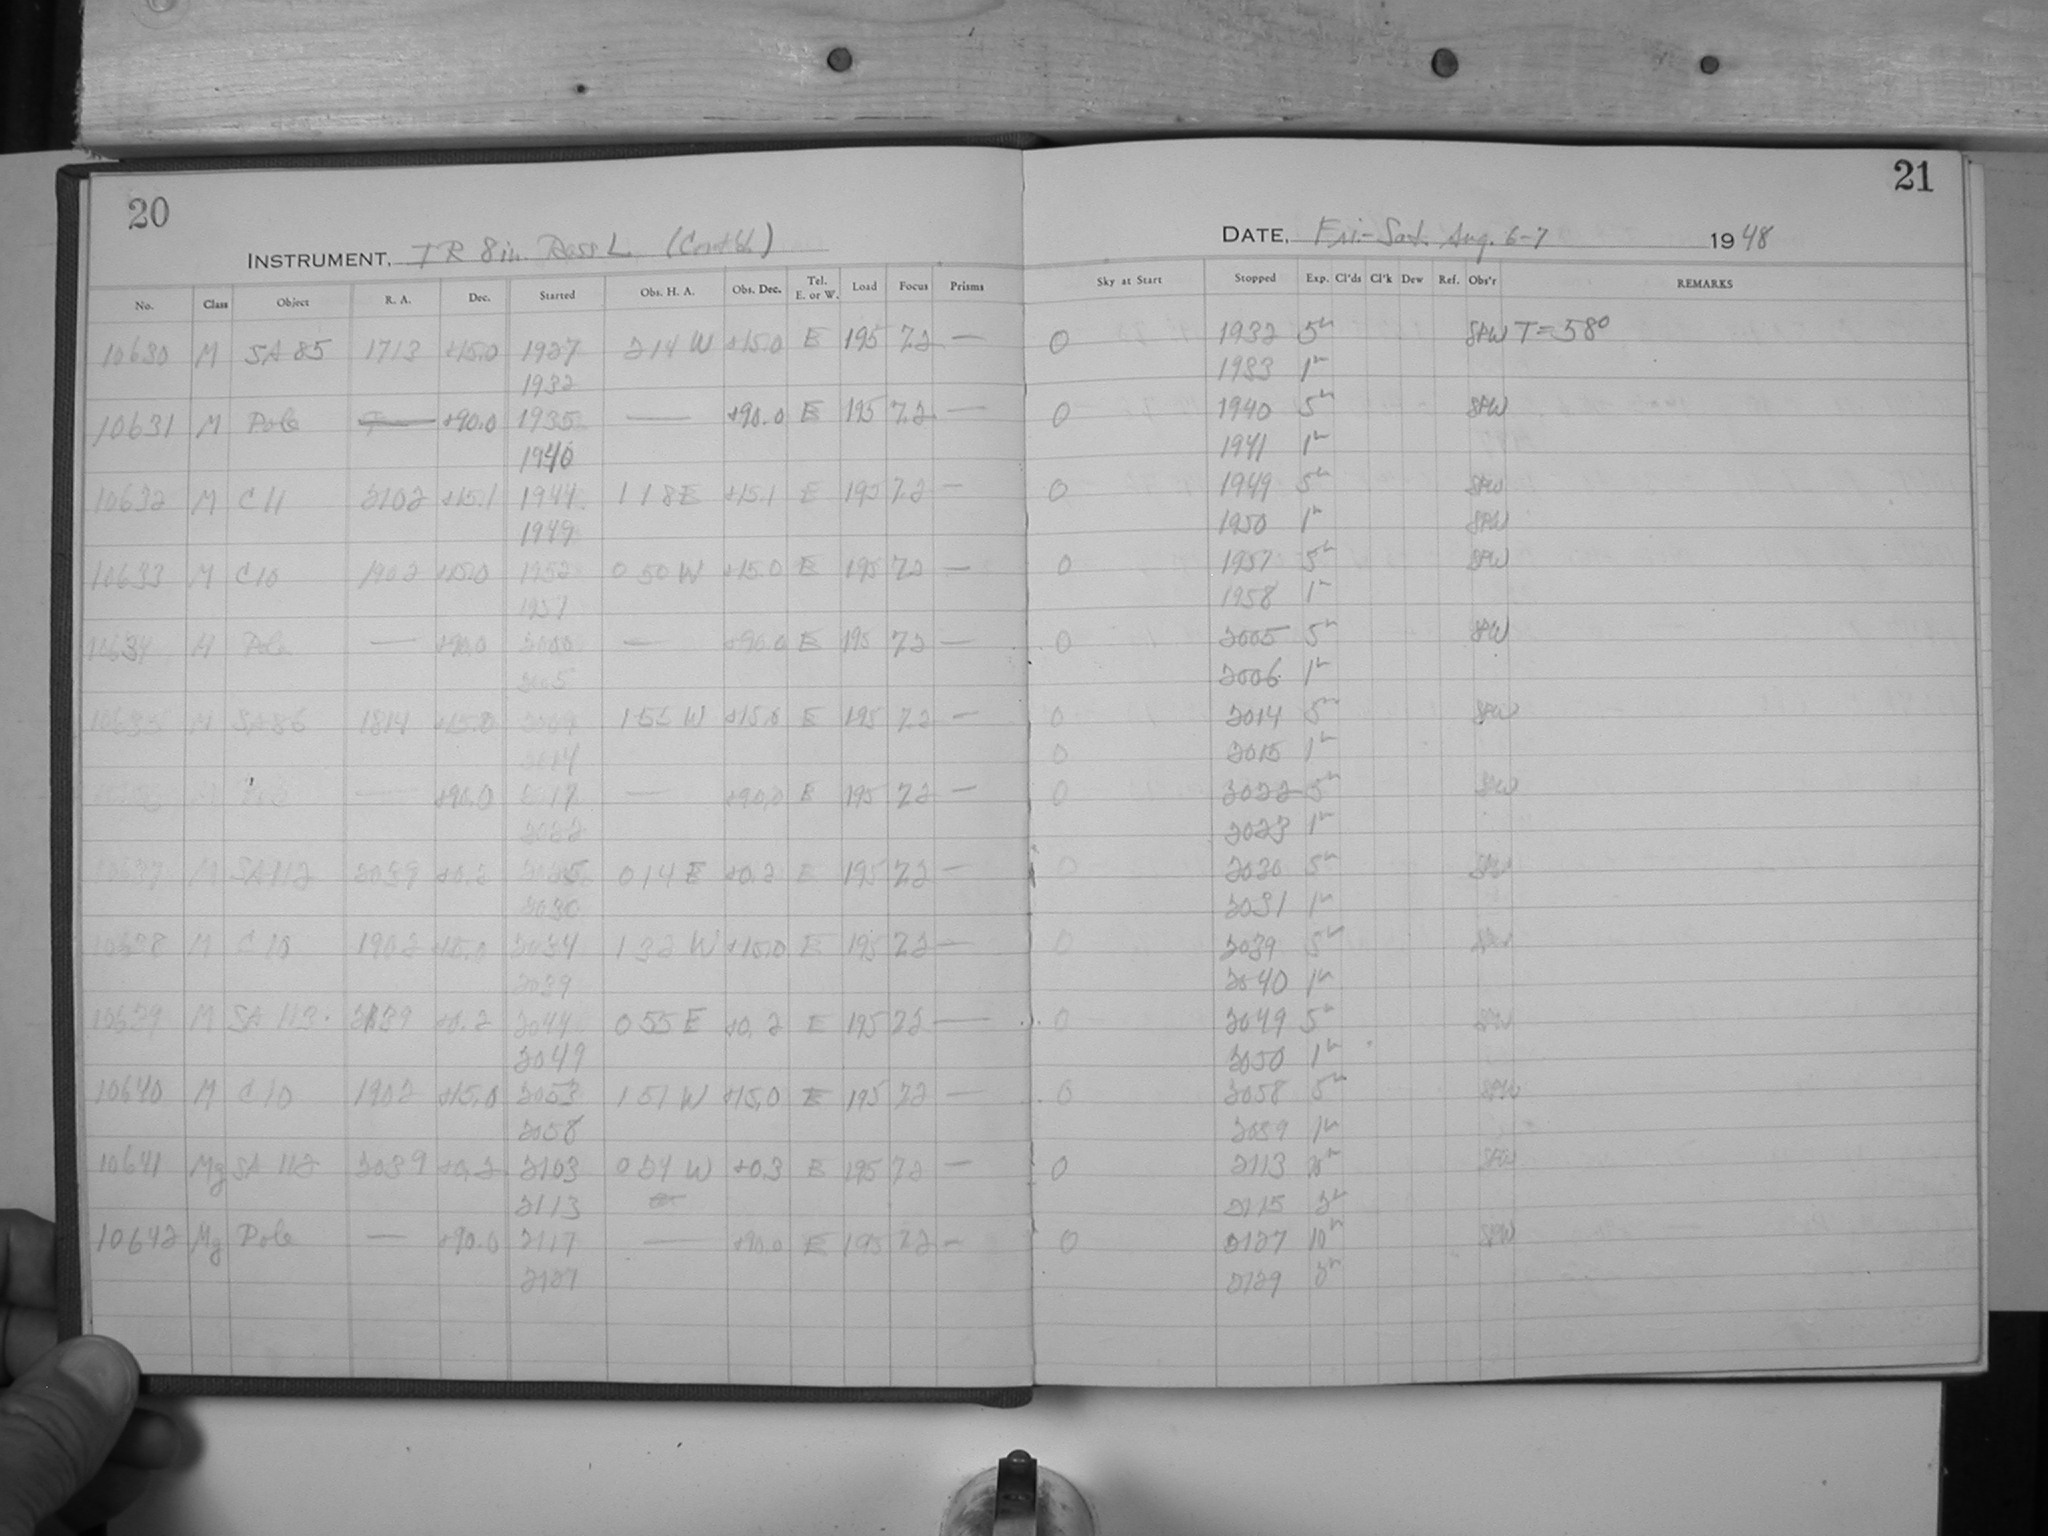 20
INSTRUMENT, IR 8in. Ross L. (Cont'd.)
No. Class Object R. A. Dec. Started Obs. H. A. Obs. Dec. Tel. E. or W. Load Focus Prisms
10630 M SA 85 1713 +15.0 1927 214 W +15.0 E 195 7.2 —
1932
10631 M Pole — +90.0 1935 — +90.0 E 195 7.2 —
1940
10632 M C 11 2102 +15.1 1944 118 E +15.1 E 195 7.2 —
1949
10633 M C 10 1902 +15.0 1952 0 50 W +15.0 E 195 7.2 —
1957
10634 M Pole — +90.0 2000 — +90.0 E 195 7.2 —
2005
10635 M SA 86 1814 +15.0 2009 1 55 W +15.0 E 195 7.2 —
2014
M — +90.0 2017 — +90.0 E 195 7.2 —
2022
10637 M SA 112 2039 +0.2 2025 0 14 E +0.2 E 195 7.2 —
2030
10638 M C 10 1902 +15.0 2034 1 32 W +15.0 E 195 7.2 —
2039
10639 M SA 113 2139 +0.2 2044 0 55 E +0.2 E 195 7.2 —
2049
10640 M C 10 1902 +15.0 2053 1 51 W +15.0 E 195 7.2 —
2058
10641 Mg SA 112 2039 +0.2 2103 0 24 W +0.3 E 195 7.2 —
2113
10642 Mg Pole — +90.0 2117 — +90.0 E 195 7.2 —
2127
21
DATE, Fri.-Sat. Aug. 6-7 1948
Sky at Start Stopped Exp. Cl'ds Cl'k Dew Ref. Obs'r REMARKS
0 1932 5m SAW T=58°
1933 1m
0 1940 5m SAW
1941 1m
0 1949 5m SAW
1950 1m SAW
0 1957 5m SAW
1958 1m
0 2005 5m SAW
2006 1m
0 2014 5m SAW
0 2015 1m
0 2022 5m SAW
2023 1m
0 2030 5m SAW
2031 1m
0 2039 5m SAW
2040 1m
0 2049 5m SAW
2050 1m
0 2058 5m SAW
2059 1m
0 2113 10m SAW
2115 2m
0 2127 10m SAW
2129 2m